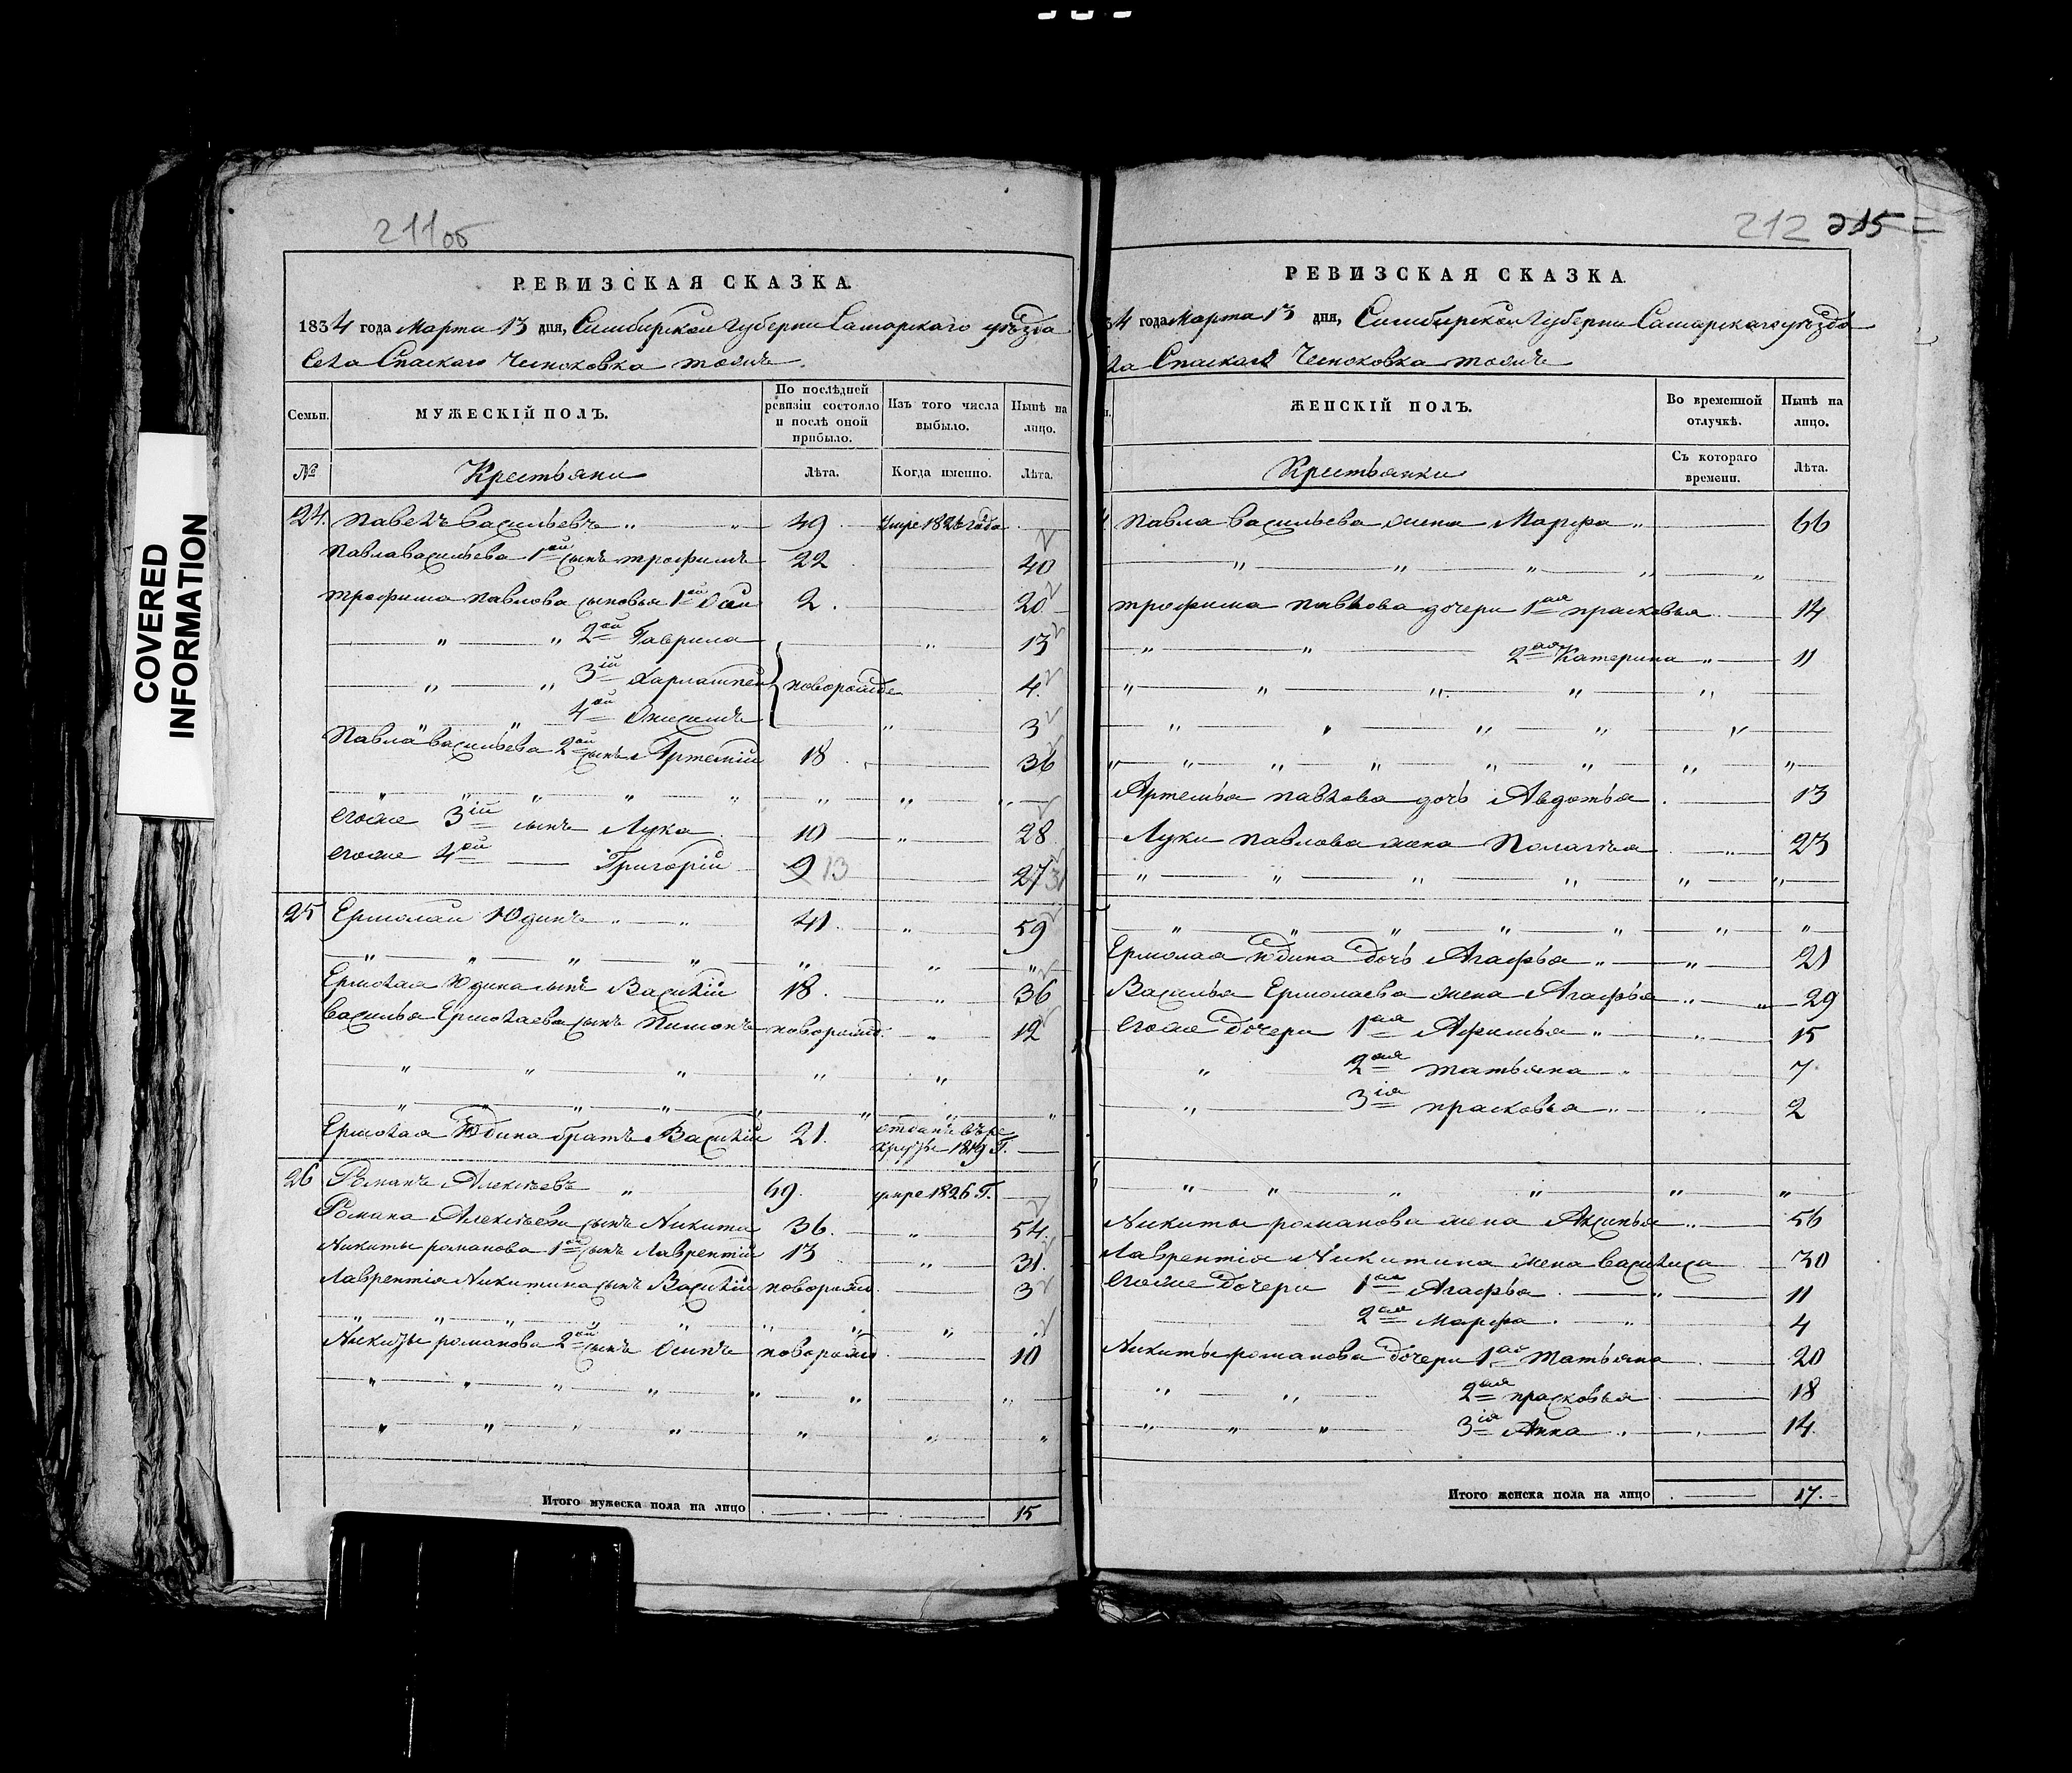 COVERED
INFORMATION
211об
РЕВИЗСКАЯ СКАЗКА.
1834 года Марта 13 дня, Симбирской Губерни Самарскаго уѣзда
Села Спаскаго Чесноковка тожъ
Семьи.
МУЖЕСКІЙ ПОЛЪ.
По послѣдней ревизіи состояло и послѣ оной прибыло.
Изъ того числа выбыло.
Нынѣ на лицо.
№
Крестьяни
Лѣта.
Когда именно.
Лѣта.
24. Павелъ Васильевъ 49 Умре 1826 года
Павла васильева 1ой сынъ трофимъ 22 40
трофима павлова сыновья 1ой 2. 20
2ой Гаврила 13
3ій Харлампей новорожде 4
4ой Онисимъ 3
Павла васильева 2ой сынъ Артемій 18 36
егоже 3ій сынъ Лука 10 28
егоже 4ой Григорій 9 13 27 31
25 Ермолай Юдинъ 41 59
Ермолая Юдина сынъ Василій 18. 36
Василья Ермолаева сынъ Пимонъ новорожд. 12
Ермолая Юдина братъ Василій 21. отданъ въ ре
круты 1819 Г.
26 Романъ Алексѣевъ 69. умре 1826 Г.
Романа Алексѣева сынъ Никита 36. 54.
Никиты романова 1ой сынъ Лаврентій 13 31.
Лаврентія Никитина сынъ Василій новорожд. 3
Никиты романова 2ой сынъ Осипъ новорожд 10
Итого мужеска пола на лицо 15
212 215
РЕВИЗСКАЯ СКАЗКА.
34 года Марта 13 дня, Симбирской Губерни Самарскаго уѣзда
ла Спаскаго Чесноковка тожъ
ЖЕНСКІЙ ПОЛЪ.
Во временной отлучкѣ.
Нынѣ на лицо.
Крестьянки
Съ котораго времени.
Лѣта.
Павла васильева жена Марфа 66
трофима павлова дочери 1ая прасковья 14
2ая Катерина 11
Артемья павлова дочь Авдотья 13
Луки павлова жена Полагія 23
Ермолая Юдина дочь Агафья 21
Василья Ермолаева жена Агафья 29
егоже дочери 1ая Афимья 15
2ая татьяна 7
3ія прасковья 2
Никиты романова жена Аксинья 56
Лаврентія Никитина жена василиса 30
егоже дочери 1ая Агафья 11
2ая Марфа 4
Никиты романова дочери 1ая татьяна 20
2ая прасковья 18
3ія Анна 14
Итого женска пола на лицо 17.